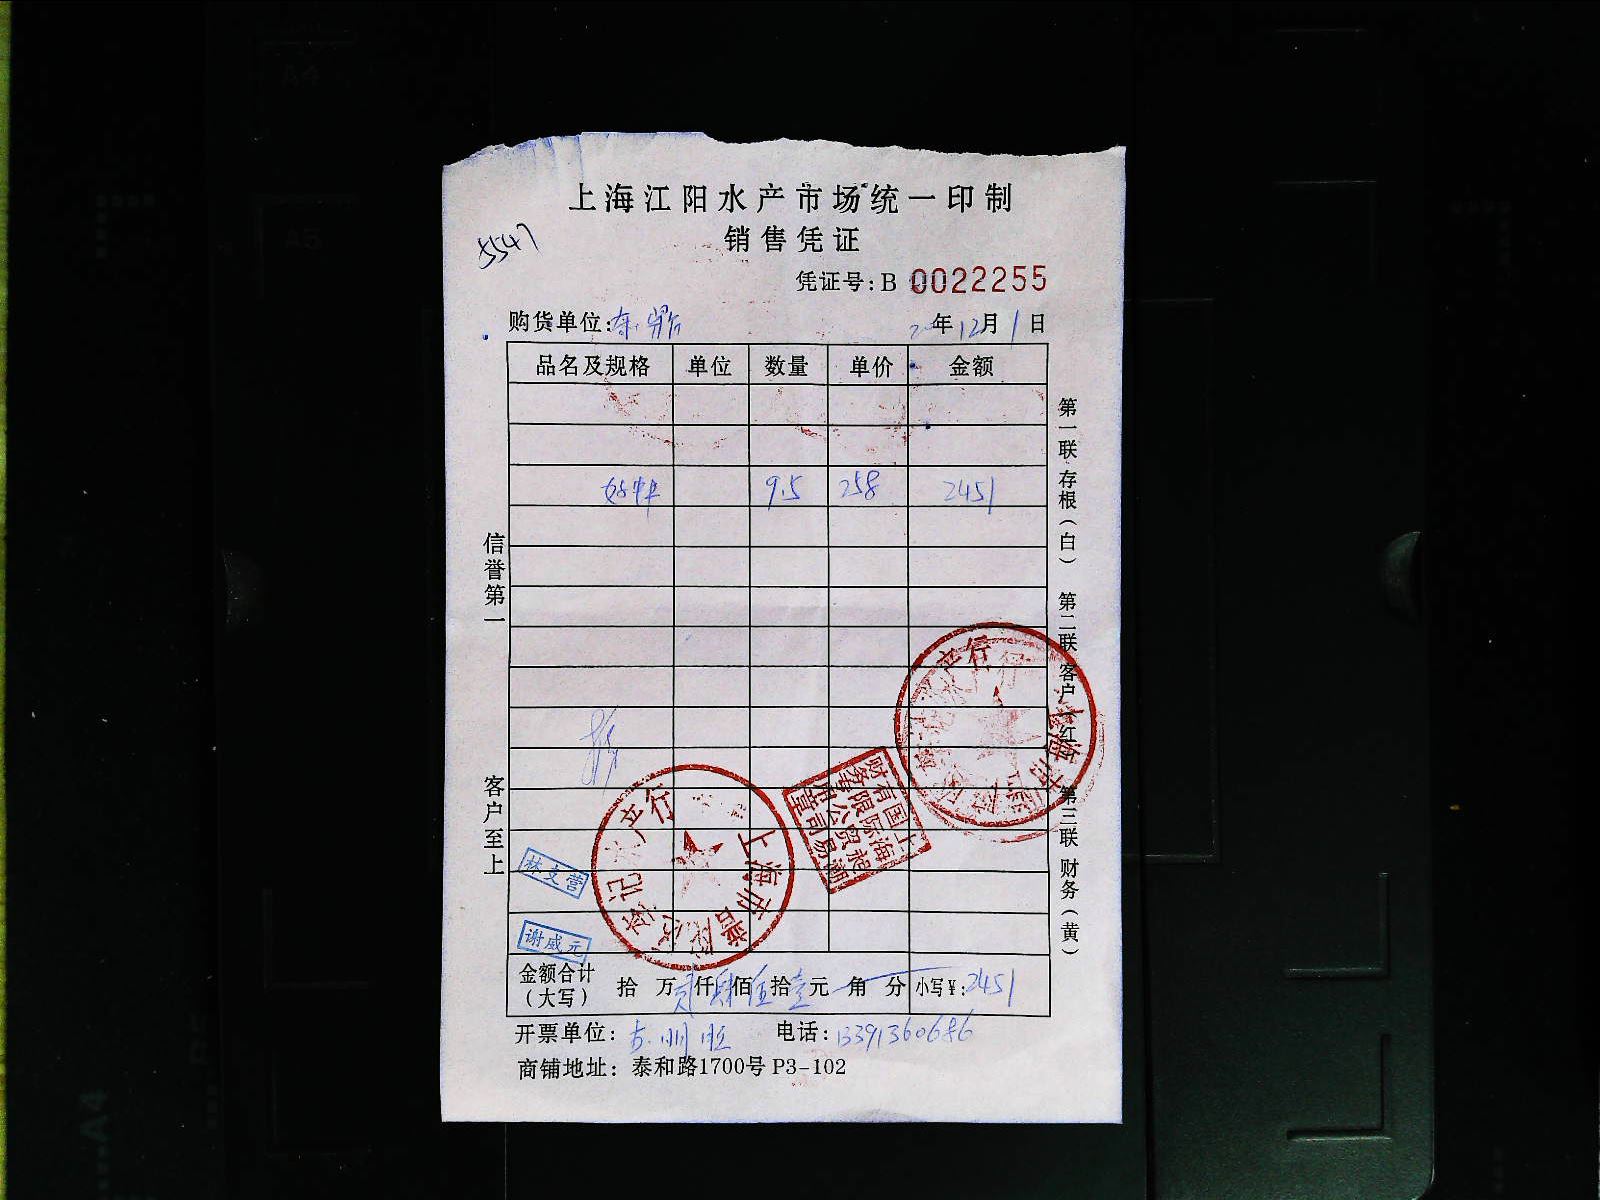 上海江阳水产市场统一印制
销售凭证
5547
凭证号:B 0022255
购货单位:
年12月1日
品名及规格 单位 数量 单价 金额
9.5 258 2451
信誉第一
客户至上
第一联 存根(白) 第二联 客户(红) 第三联 财务(黄)
上海市
水产行
上海昶潮
国际贸易
有限公司
财务专用章
上海市普陀区
李记水产行
林支营
谢威元
金额合计(大写) 拾 万贰仟肆佰伍拾壹元 角 分 小写¥:2451
开票单位: 电话:13391360686
商铺地址: 泰和路1700号 P3-102